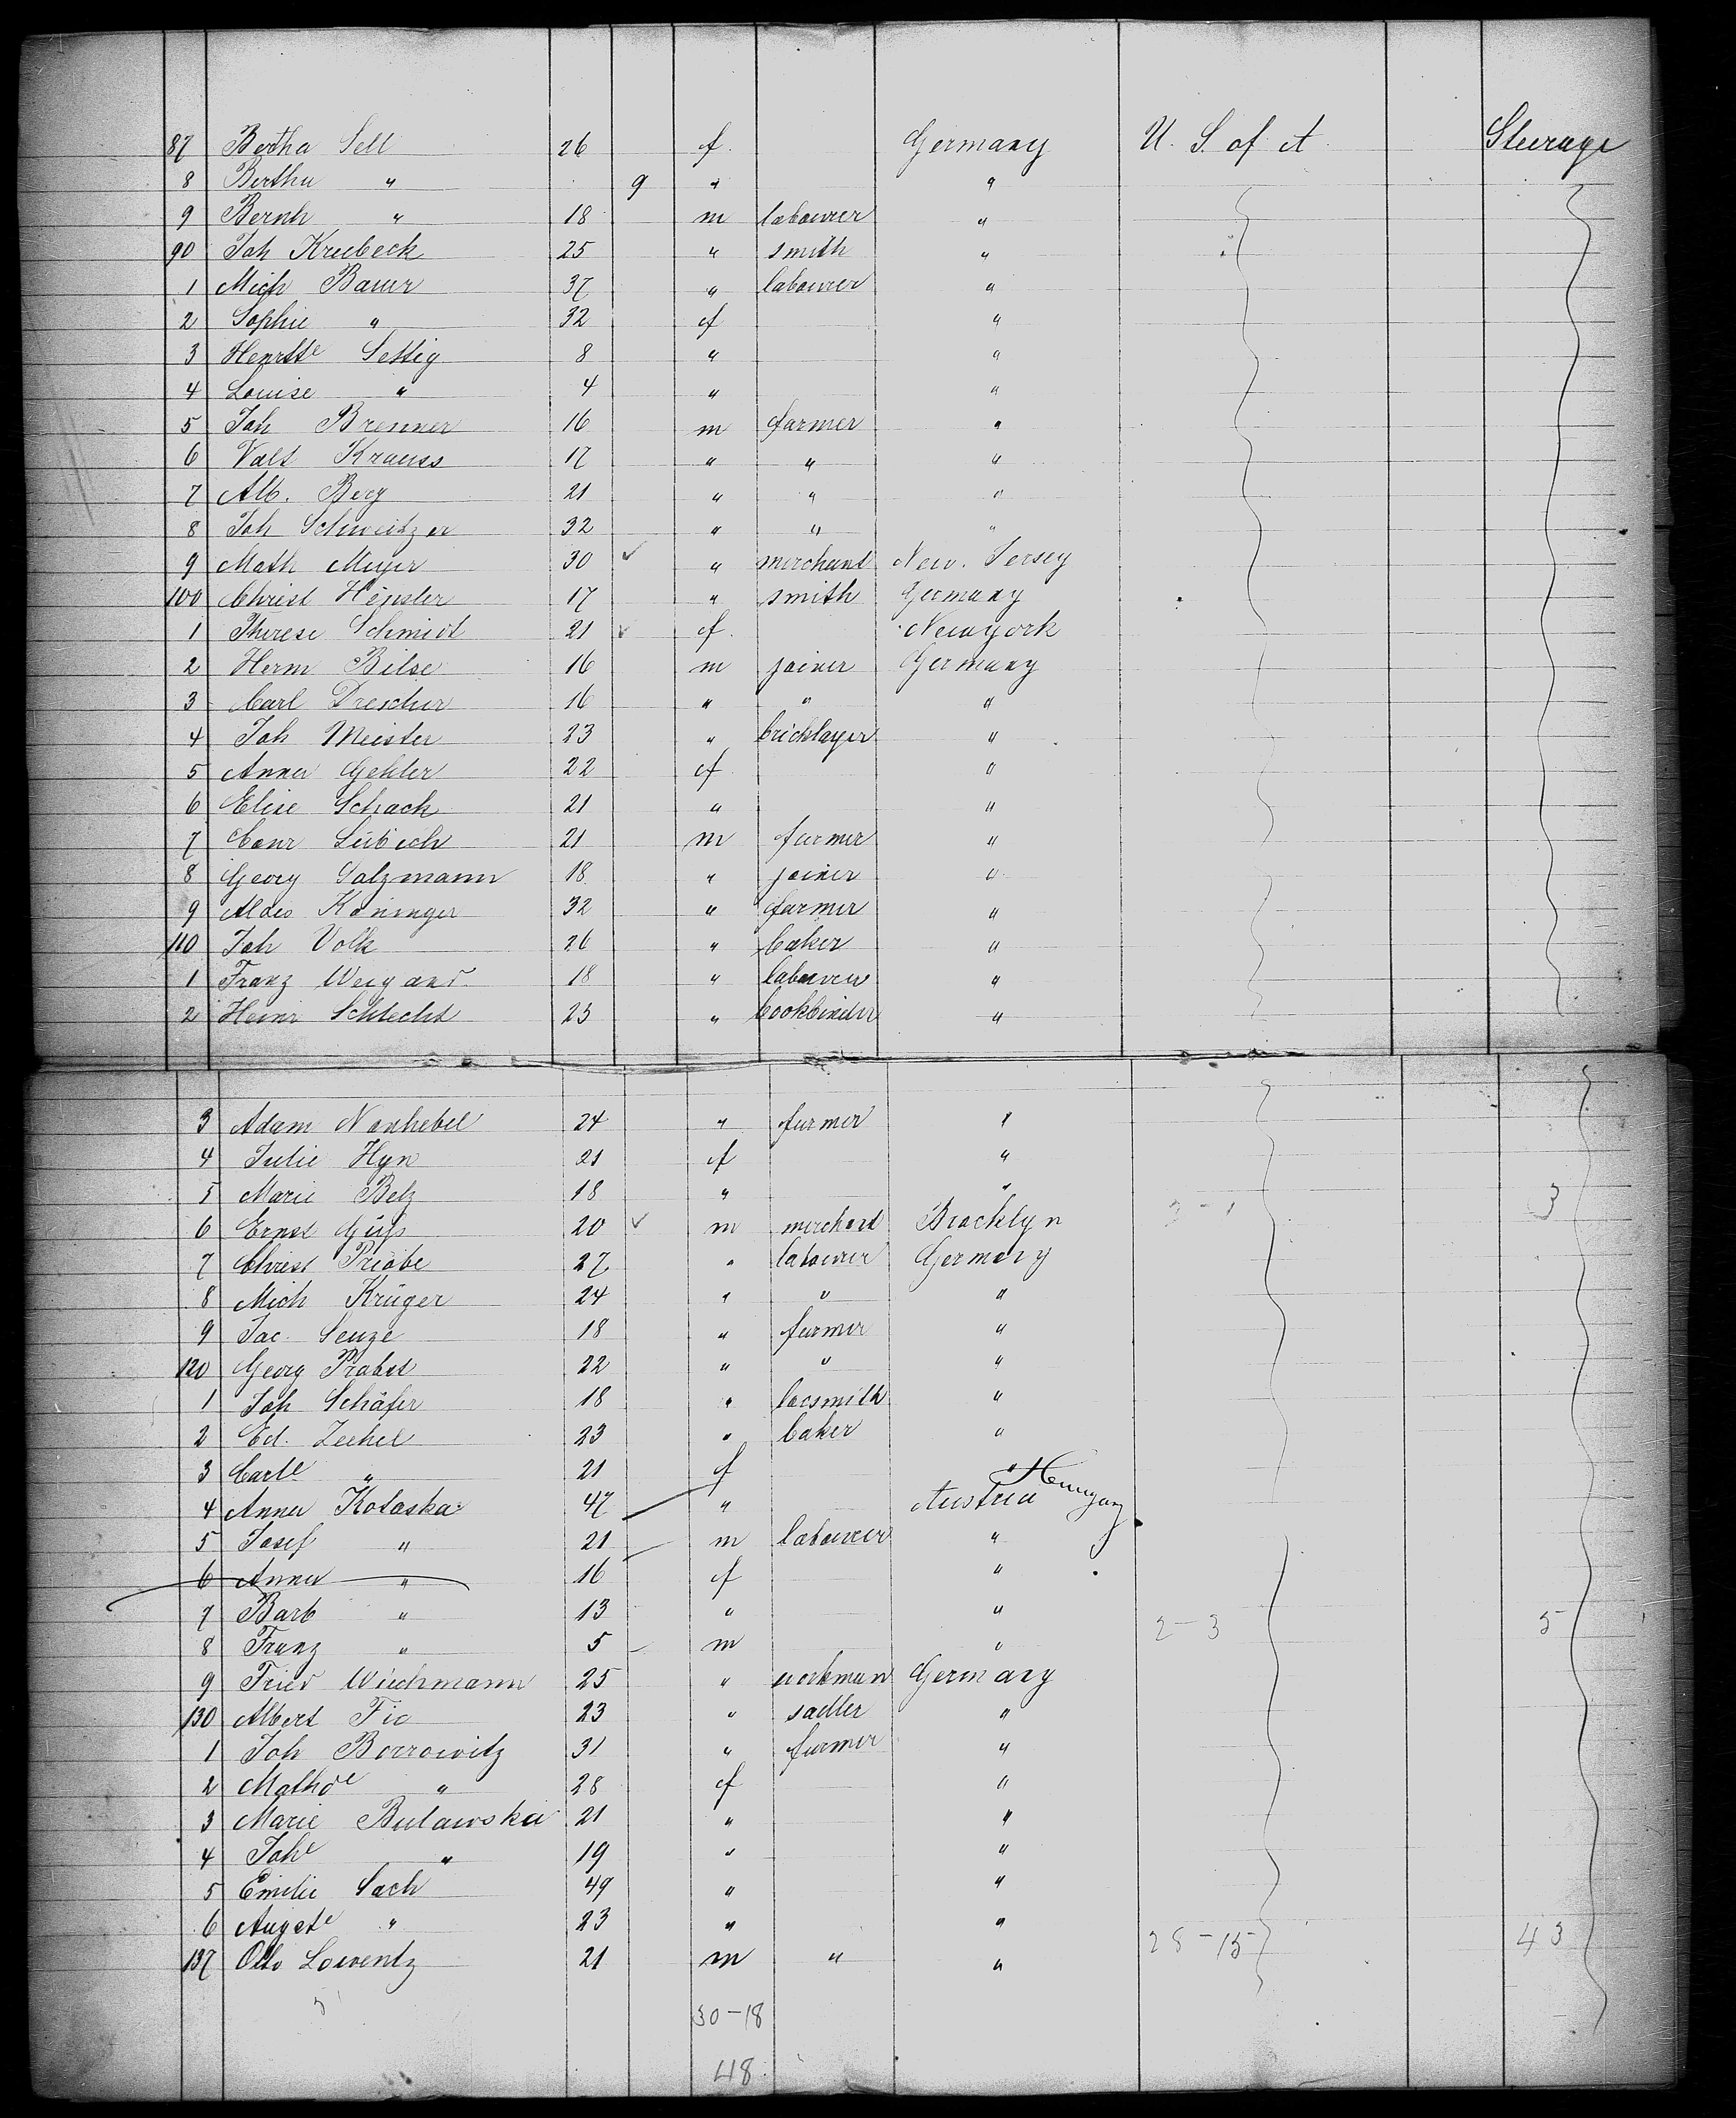 87 Bertha Sell 26 f. Germany U. S. of A. Steerage
8 Bertha " 9 " "
9 Bernh " 18 m labourer "
90 Joh Kriebeck 25 " smith "
1 Mich Bauer 37 " labourer "
2 Sophie " 32 f "
3 Henrtte Settig 8 " "
4 Louise " 4 " "
5 Joh Brenner 16 m farmer "
6 Valt Krauss 17 " " "
7 Alb. Berg 21 " " "
8 Joh Schweitzer 32 " " "
9 Math Meyer 30 ✓ " merchant New. Jersey
100 Christ Hensler 17 " smith Germany
1 Therese Schmidt 21 ✓ f. Newyork
2 Herm Bilse 16 m joiner Germany
3 Carl Drescher 16 " " "
4 Joh Meister 23 " bricklayer "
5 Anna Gehler 22 f "
6 Elise Schack 21 " "
7 Conr Lübech 21 m farmer "
8 Georg Salzmann 18 " joiner "
9 Alois Koninger 32 " farmer "
110 Joh Volk 26 " baker "
1 Franz Weigand 18 " labourer "
2 Heinr Schlecht 23 " bookbinder "
3 Adam Nanhebel 24 " farmer "
4 Julie Hyn 21 f "
5 Marie Belz 18 " " 3
6 Ernst 20 ✓ m merchant Brocklyn
7 Christ Priebe 27 " labourer Germany
8 Mich Krüger 24 " " "
9 Jac. Senze 18 " farmer "
120 Georg Probst 22 " " "
1 Joh Schäfer 18 " locsmith "
2 Ed. Zechel 23 " baker "
3 Carle " 21 f "
4 Anna Kolaska 47 " Austria Hungary
5 Josef " 21 m labourer "
6 Anna " 16 f "
7 Barb " 13 " " 2-3 5
8 Franz " 5 m "
9 Fried Wiechmann 25 " workman Germany
130 Albert Fic 23 " sadler "
1 Joh Borrowitz 31 " farmer "
2 Mathde " 28 f "
3 Marie Bulawska 21 " "
4 Johe " 19 " "
5 Emilie Sach 49 " "
6 Augste " 23 " "
137 Otto Lowentz 21 m " " 28-15 43
30-18
48